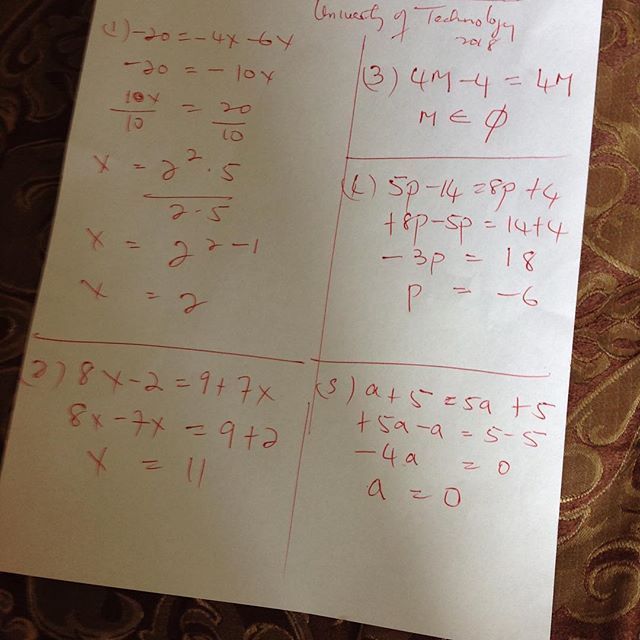 University of Technology
2018
(1) -20 = -4x - 6x
-20 = -10x
10x/10 = 20/10
x = 2² · 5 / 2 · 5
x = 2²⁻¹
x = 2
(2) 8x - 2 = 9 + 7x
8x - 7x = 9 + 2
x = 11
(3) 4M - 4 = 4M
M ∈ ∅
(4) 5p - 14 = 8p + 4
+8p - 5p = 14 + 4
-3p = 18
p = -6
(5) a + 5 = 5a + 5
+5a - a = 5 - 5
-4a = 0
a = 0